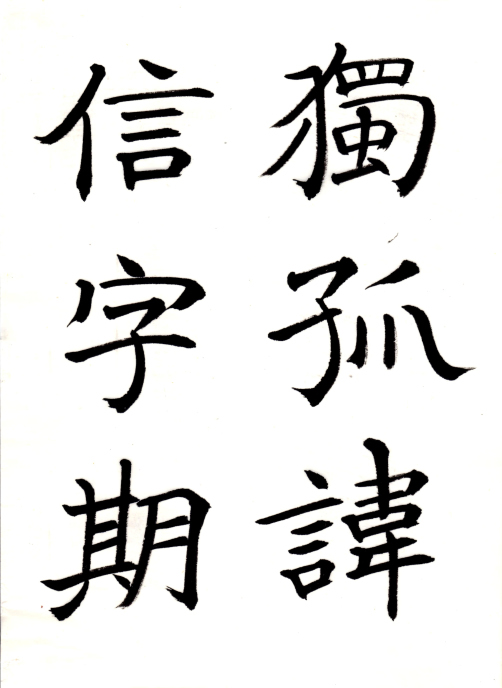 獨孤諱
信字期